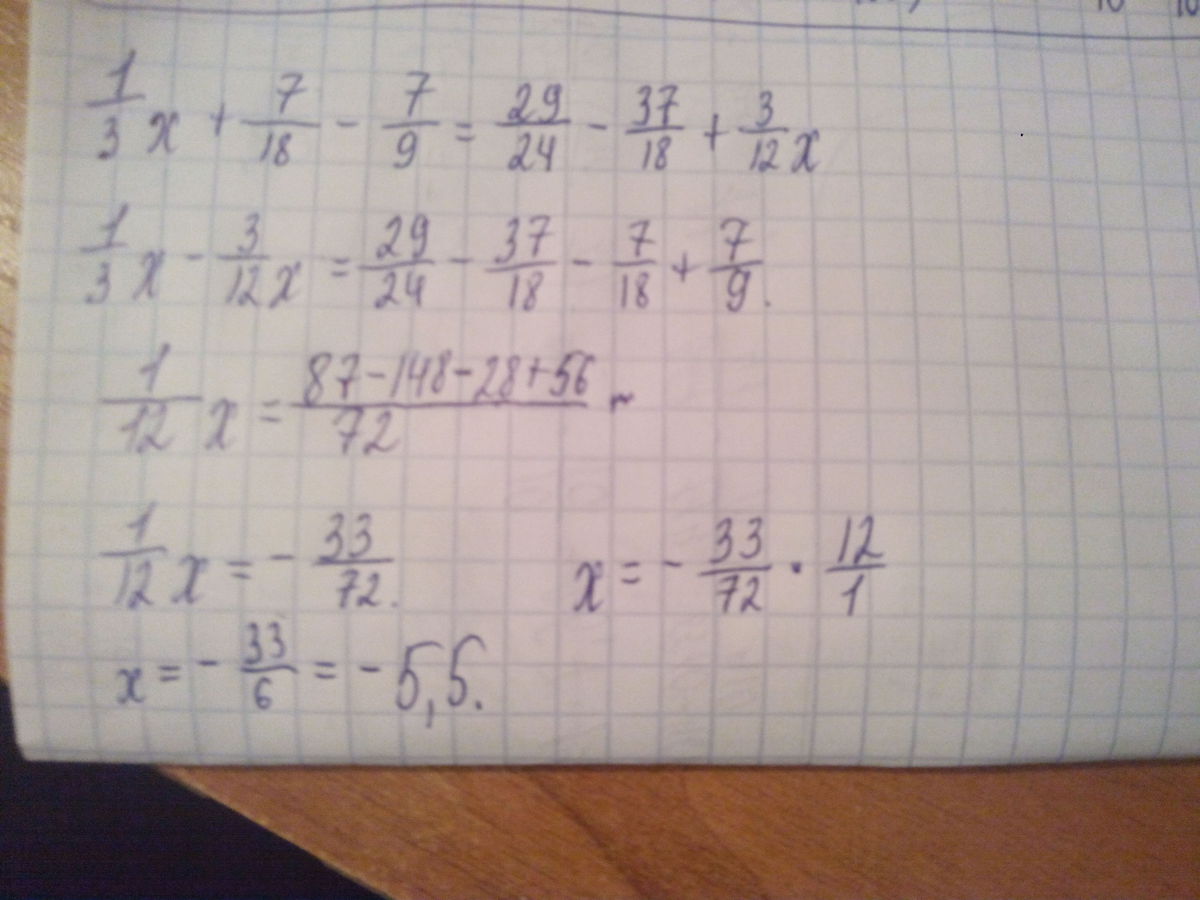 1/3 x + 7/18 - 7/9 = 29/24 - 37/18 + 3/12 x
1/3 x - 3/12 x = 29/24 - 37/18 - 7/18 + 7/9.
1/12 x = (87-148-28+56)/72 ~
1/12 x = - 33/72. x = - 33/72 · 12/1
x = - 33/6 = - 5,5.